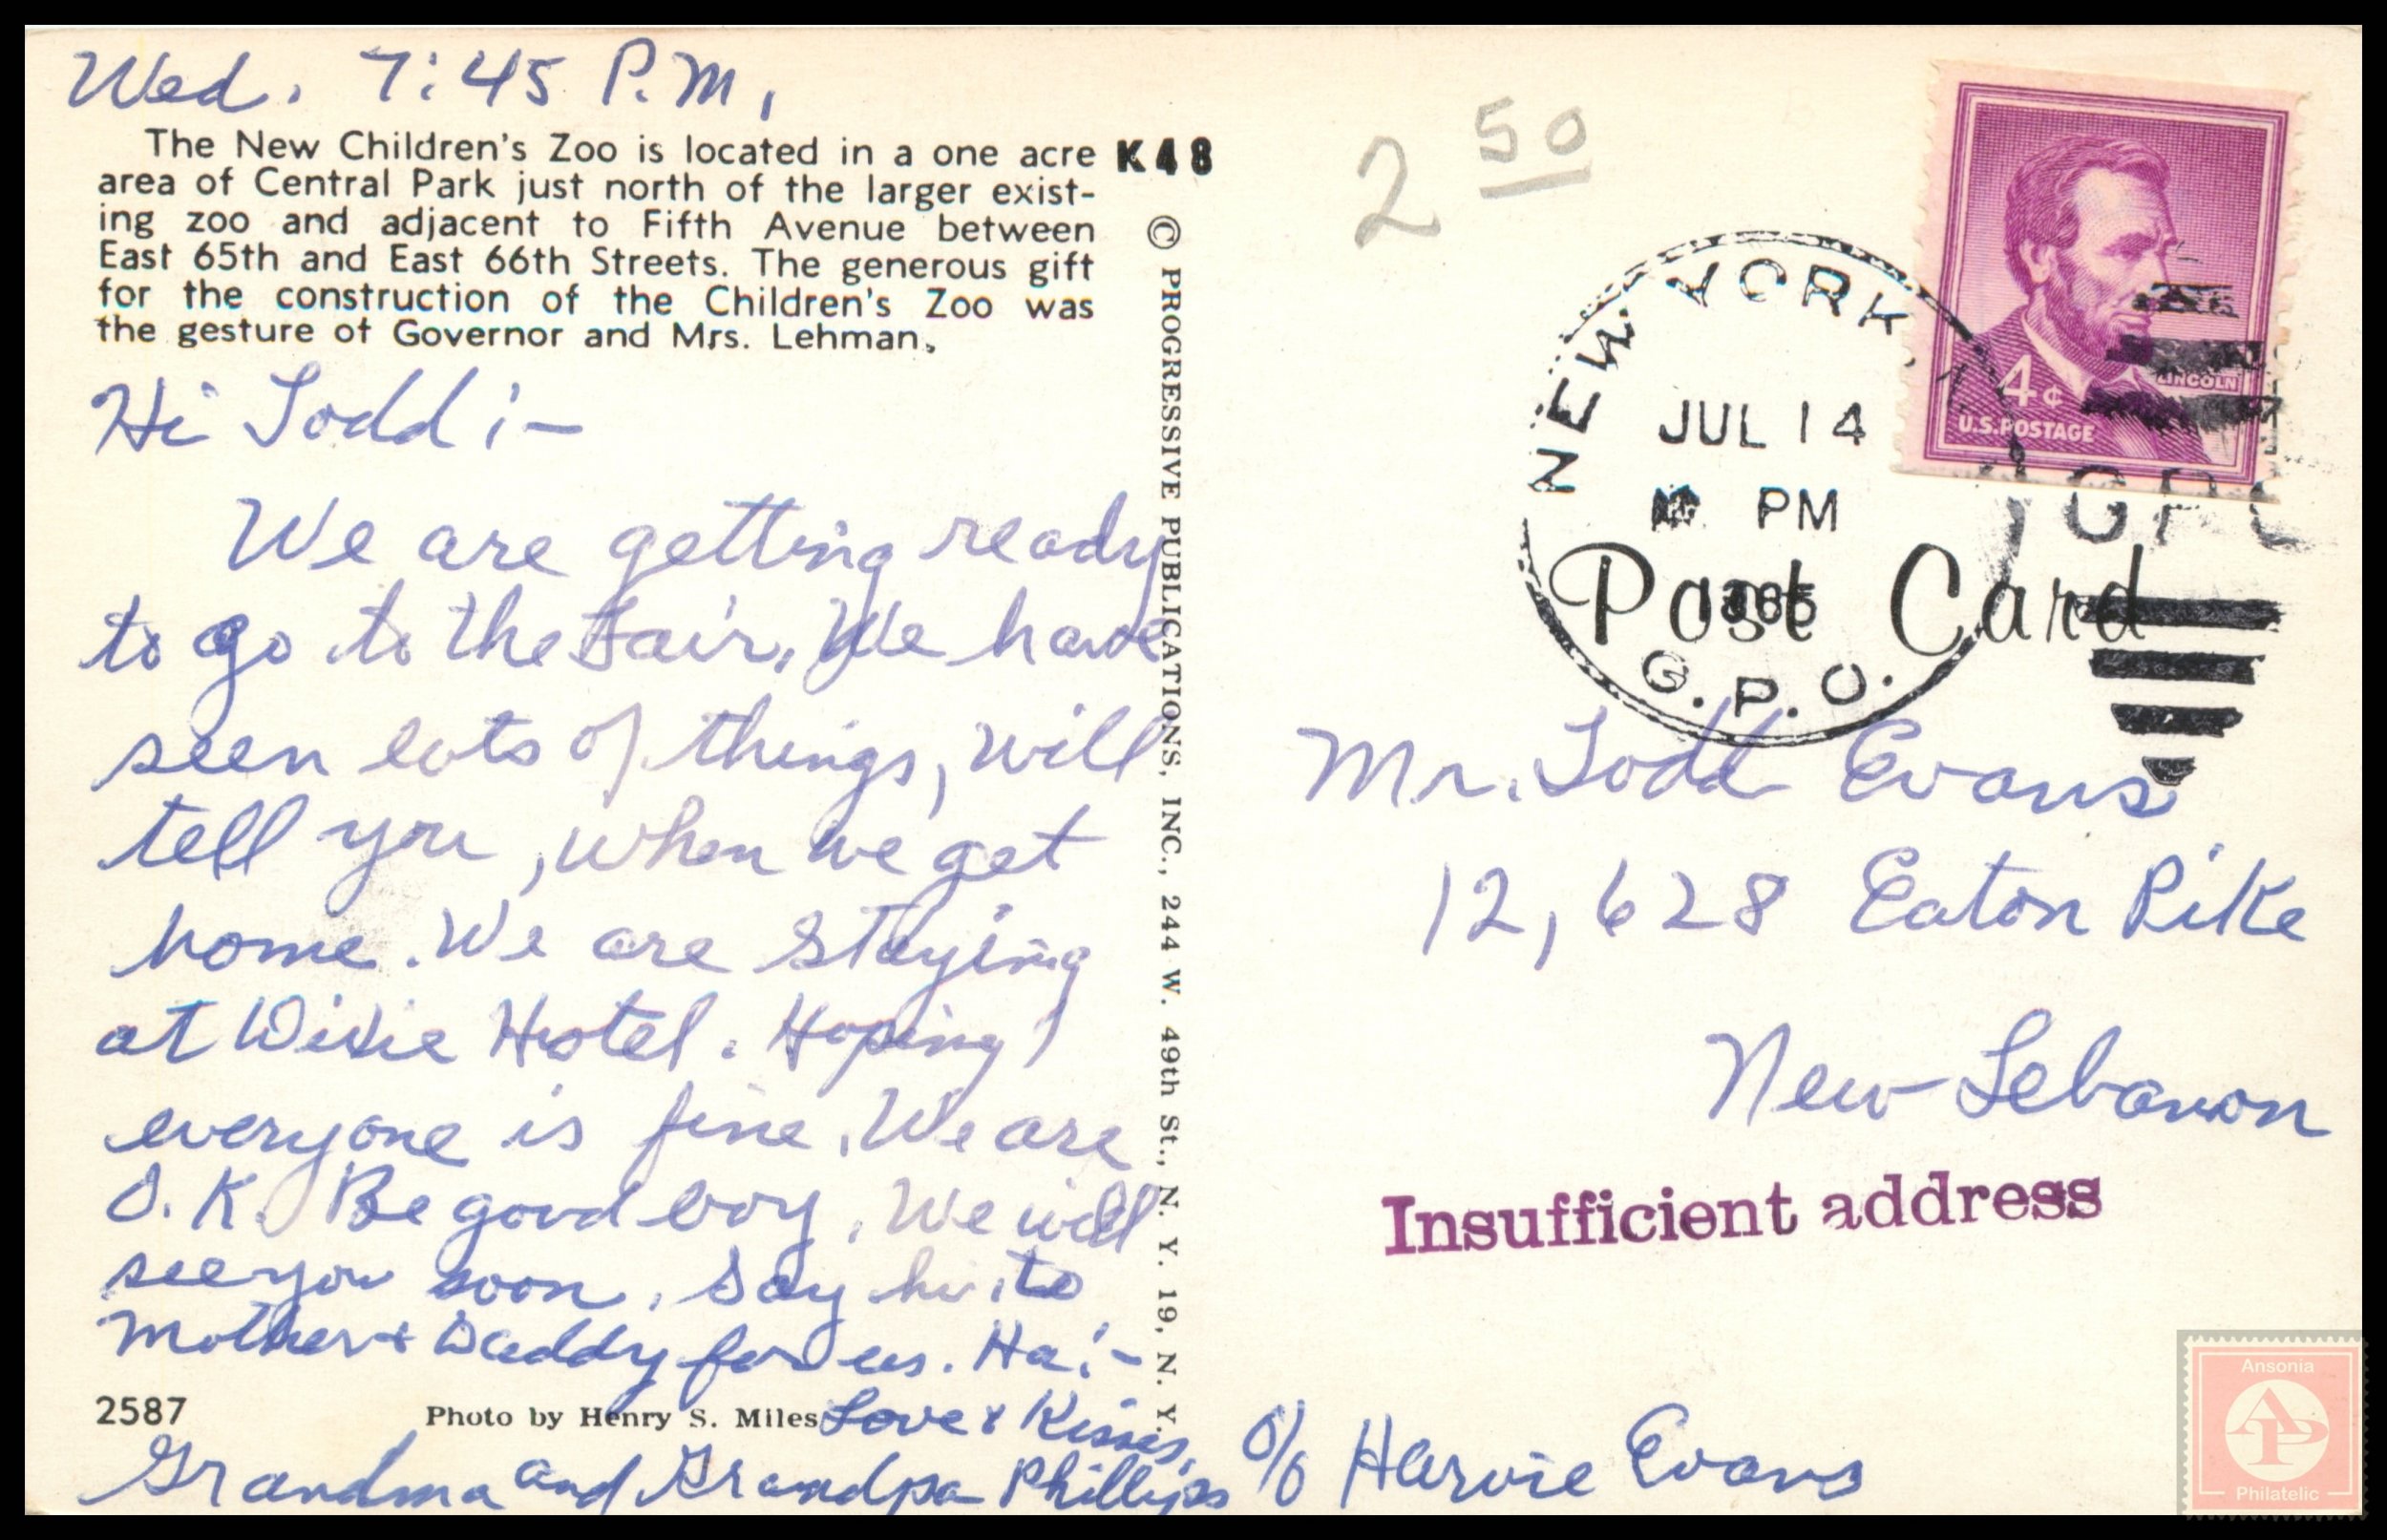 Wed. 7:45 P.M.
The New Children's Zoo is located in a one acre
area of Central Park just north of the larger exist-
ing zoo and adjacent to Fifth Avenue between
East 65th and East 66th Streets. The generous gift
for the construction of the Children's Zoo was
the gesture of Governor and Mrs. Lehman.
K48
Hi Todd :-
We are getting ready
to go to the Fair. We have
seen lots of things, will
tell you, when we get
home. We are staying
at Dixie Hotel. Hoping
everyone is fine. We are
O.K. Be good boy. We will
see you soon. Say hi to
Mother & Daddy for us. Ha:-
2587
Photo by Henry S. Miles
Love & Kisses,
Grandma and Grandpa Phillips
© PROGRESSIVE PUBLICATIONS, INC., 244 W. 49th St., N. Y. 19, N. Y.
2 50
4¢
LINCOLN
U.S.POSTAGE
NEW YORK, N
JUL 14
PM
1965
G.P.O.
GPO
Post Card
Mr. Todd Evans
12,628 Eaton Pike
New Lebanon
Insufficient address
c/o Harvie Evans
Ansonia
AP
Philatelic